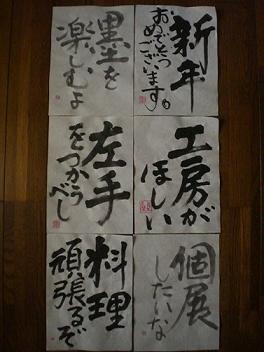 新年
おめでとう
ございます。
墨を
楽しむよ
工房が
ほしい
左手
をつかう
べし
個展
したいな
料理
頑張るぞ